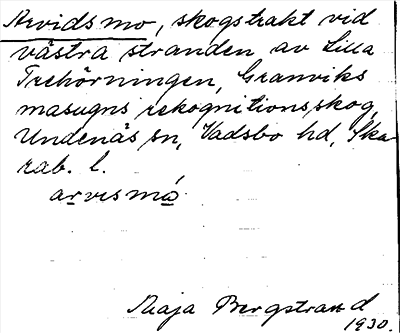 Arvidsmo, skogstrakt vid
västra stranden av Lilla
Trehörningen, Granviks
masugns rekognitionsskog,
Undenäs sn, Vadsbo hd, Ska-
rab. l.
arvesmó
Maja Bergstrand
1930.